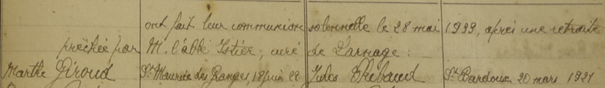 ont fait leur communion solennelle le 28 mai 1933, après une retraite
prêchée par M. l'abbé Istier, curé de Larnage :
Marthe Giroud St Maurice des Granges, 18 juin 22 Jules Thibaud St Bardoux 20 mars 1921